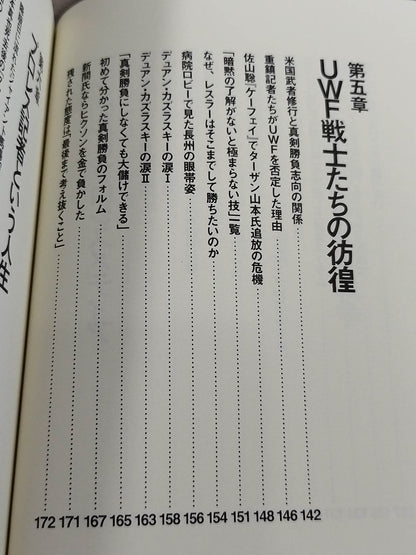 第五章
UWF戦士たちの彷徨
米国武者修行と真剣勝負志向の関係 142
重鎮記者たちがUWFを否定した理由 146
佐山聡『ケーフェイ』でターザン山本氏追放の危機 148
「暗黙の了解がないと極まらない技」一覧 151
なぜ、レスラーはそこまでして勝ちたいのか 154
病院ロビーで見た長州の眼帯姿 156
デュアン・カズラスキーの涙Ⅰ 158
デュアン・カズラスキーの涙Ⅱ 163
「真剣勝負にしなくても大儲けできる」 165
初めて分かった真剣勝負のフォルム 167
新間氏ならヒクソンを金で負かした 171
残された態度は「最後まで考え抜くこと」 172